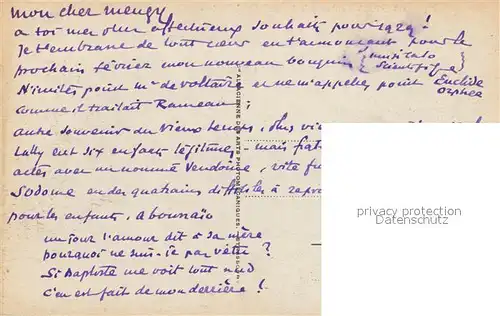 mon cher mengy
a toi mes plus affectueux souhaits pour 1929!
Je t'embrasse de tout cœur en t'annonçant pour le
prochain février mon nouveau bouquin { musicalo scientifique
N'imites point Mr de Voltaire en ne m'appelez point Euclide Orphée
comme il traitait Rameau;
autre souvenir du Vieux temps, plus vi
Lully eut six enfants légitimes, mais
actes avec un nommé Vendôme, vite fu
Sodome en des quatrains difficiles à repr
pour les enfants,
un jour l'amour dit à sa mère
pourquoi ne suis-je pas vêtu?
Si Baptiste me voit tout nud
C'en est fait de mon derrière!
privacy protection
Oldthing.com